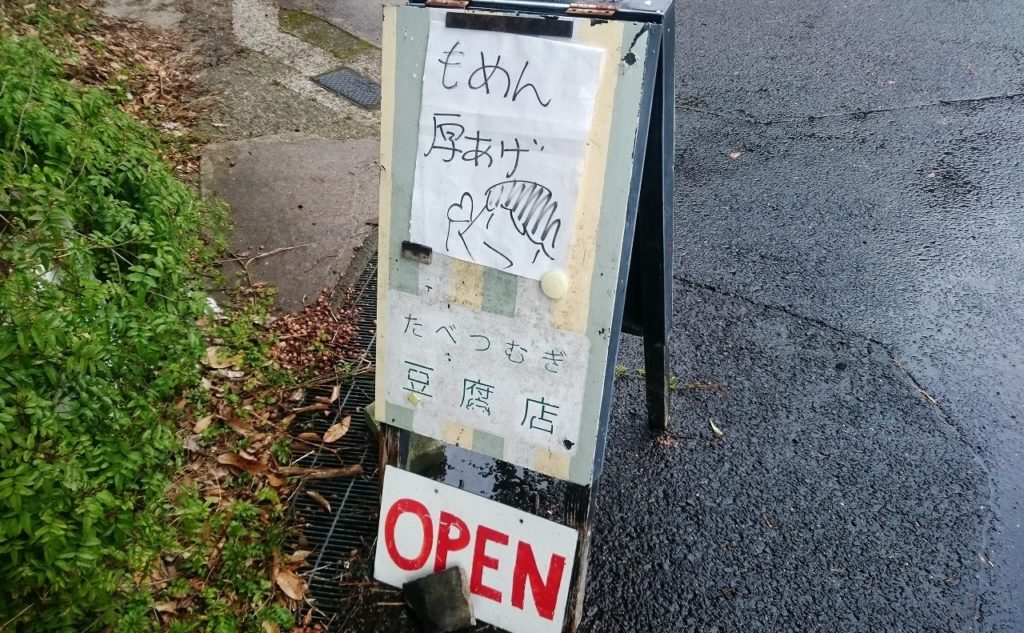 もめん
厚あげ
たべつむぎ
豆腐店
OPEN